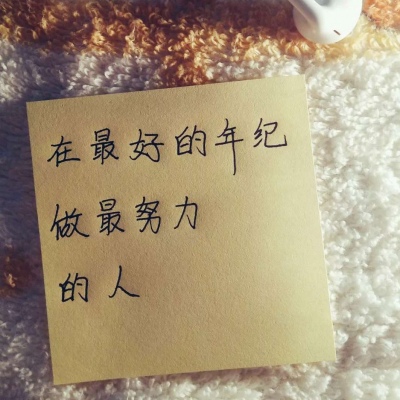 在最好的年纪
做最努力
的人